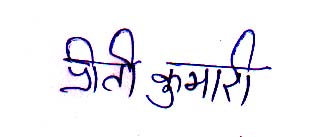 प्रीती कुमारी